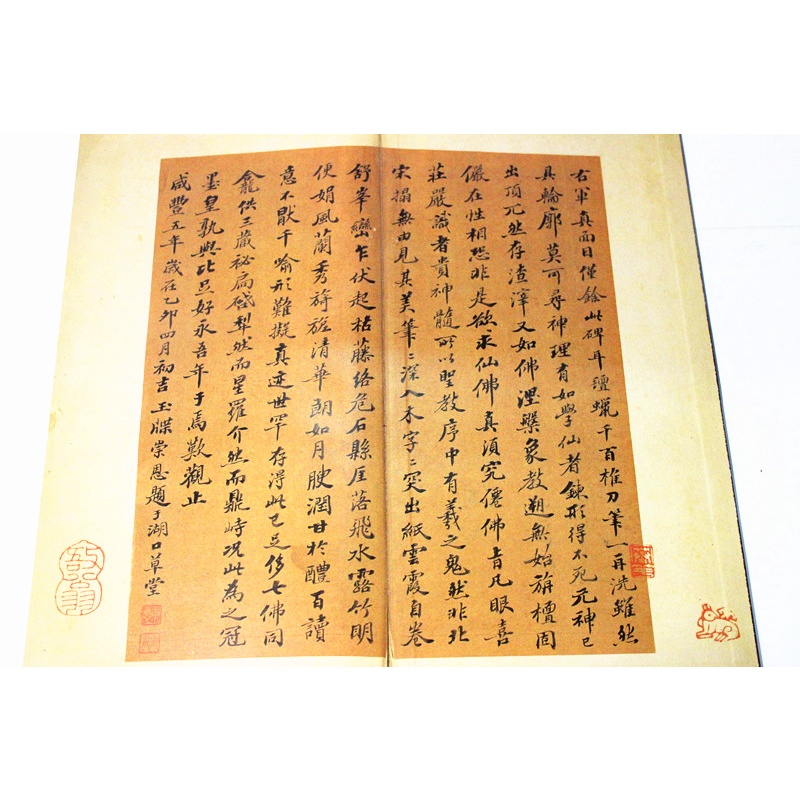 右軍真面目僅餘此碑耳氊蠟千百椎刀筆一再洗雖然
具輪廓莫可尋神理有如學仙者鍊形得不死元神已
出頂兀然存渣滓又如佛涅槃象教遡無始旃檀固
儼在性相恐非是欲求仙佛真須究僊佛旨凡眼喜
莊嚴識者貴神髓所以聖教序中有羲之鬼然非北
宋搨無由見其美筆〻深入木字〻突出紙雲霞自卷
舒峯巒乍伏起枯藤絡危石縣厓落飛水露竹明
便娟風蘭秀旖旎清華朗如月腴潤甘於醴百讀
意不猒千喻形難擬真迹世罕存得此已足侈七佛同
龕供三藏祕扃啟犁然而星羅介然而鼎峙況此為之冠
墨皇孰與比只好永吾年于焉歎觀止
咸豐五年歲在乙卯四月初吉玉牒崇恩題于湖口草堂